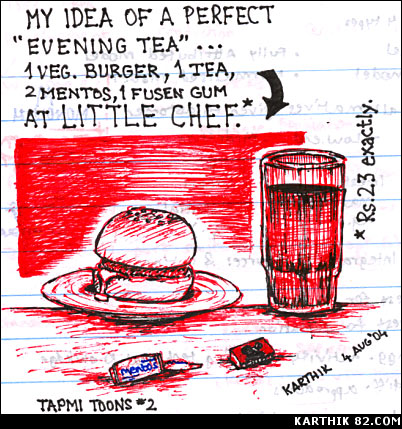 MY IDEA OF A PERFECT
"EVENING TEA" ...
1 VEG. BURGER, 1 TEA,
2 MENTOS, 1 FUSEN GUM
AT LITTLE CHEF.*
* Rs.23 exactly.
mentos
KARTHIK 4 AUG '04
TAPMI TOONS #2
KARTHIK 82.COM